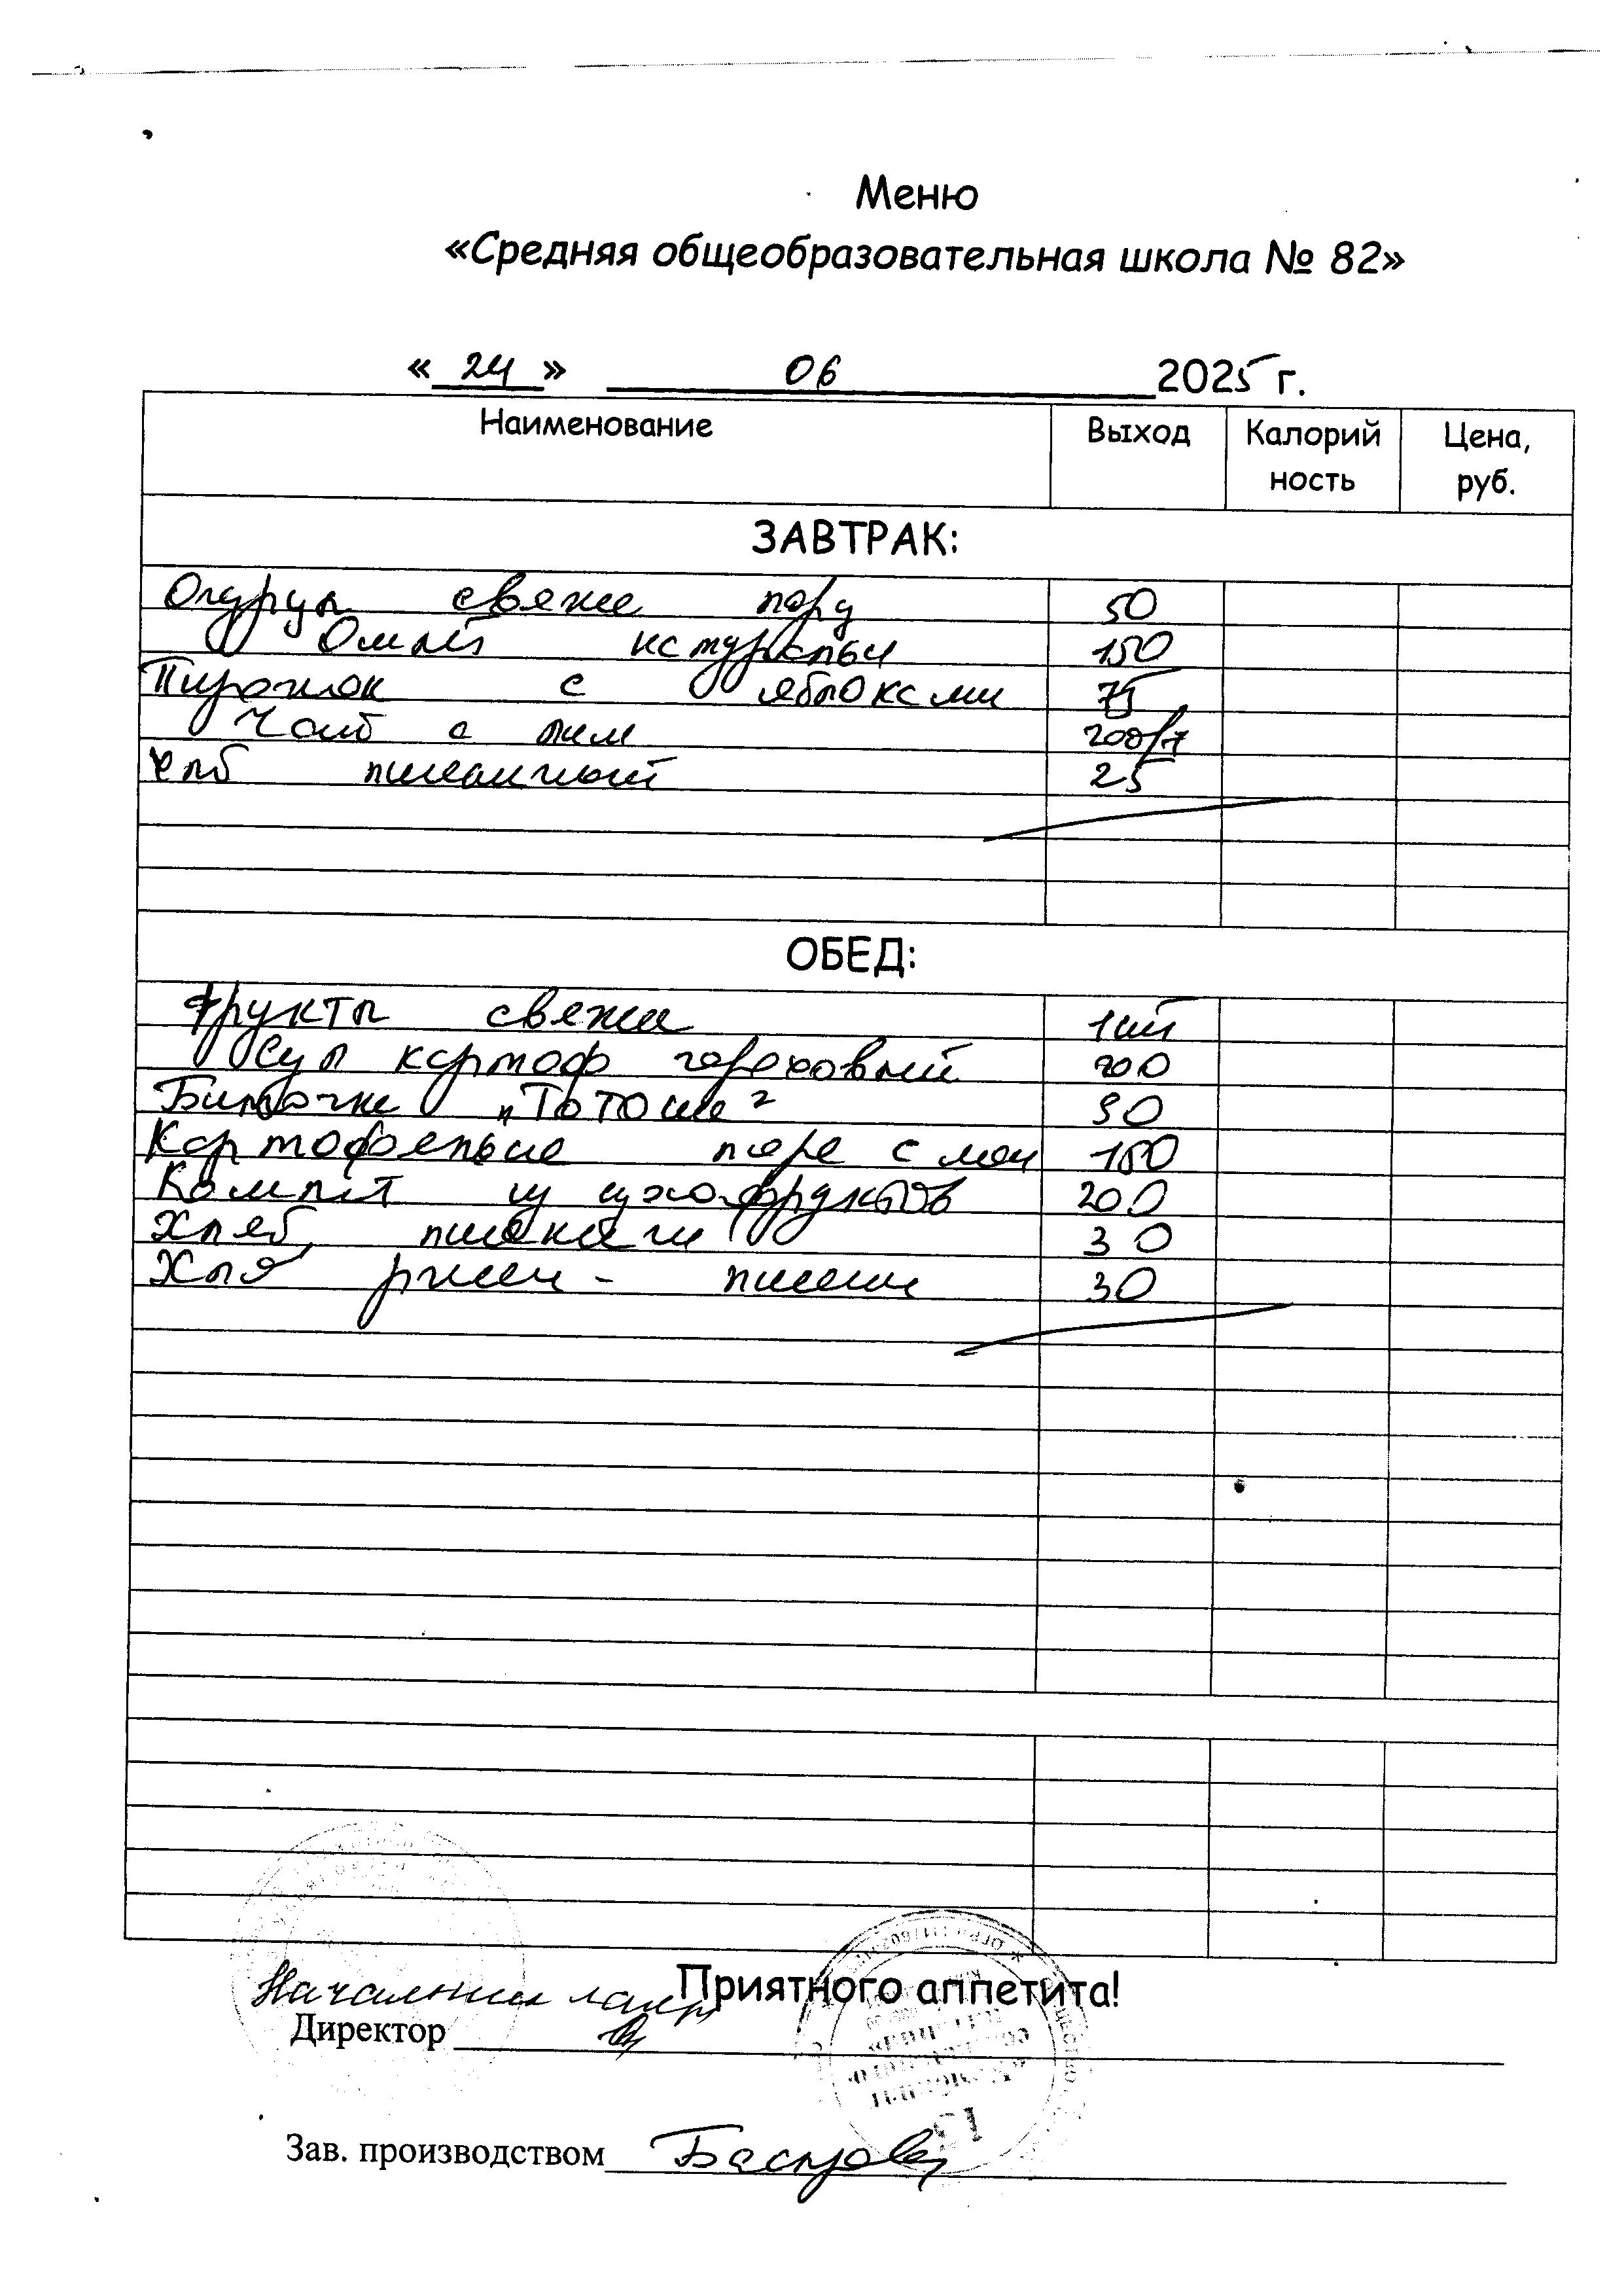 Меню
«Средняя общеобразовательная школа № 82»
« 24 » 06 2025 г.
Наименование Выход Калорий Цена,
ность руб.
ЗАВТРАК:
Огурцы свежие порц 50
Омлет натуральн 150
Пирожок с яблоками 75
Чай с лим 200/7
Хлеб пшеничный 25
ОБЕД:
Фрукты свежие 1шт
Суп картоф гороховый 200
Биточки "Тотоша" 90
Картофельное пюре с мол 150
Компот из сухофруктов 200
Хлеб 30
Хлеб ржан - пшен 30
Приятного аппетита!
Начальник лагеря
Директор
Зав. производством